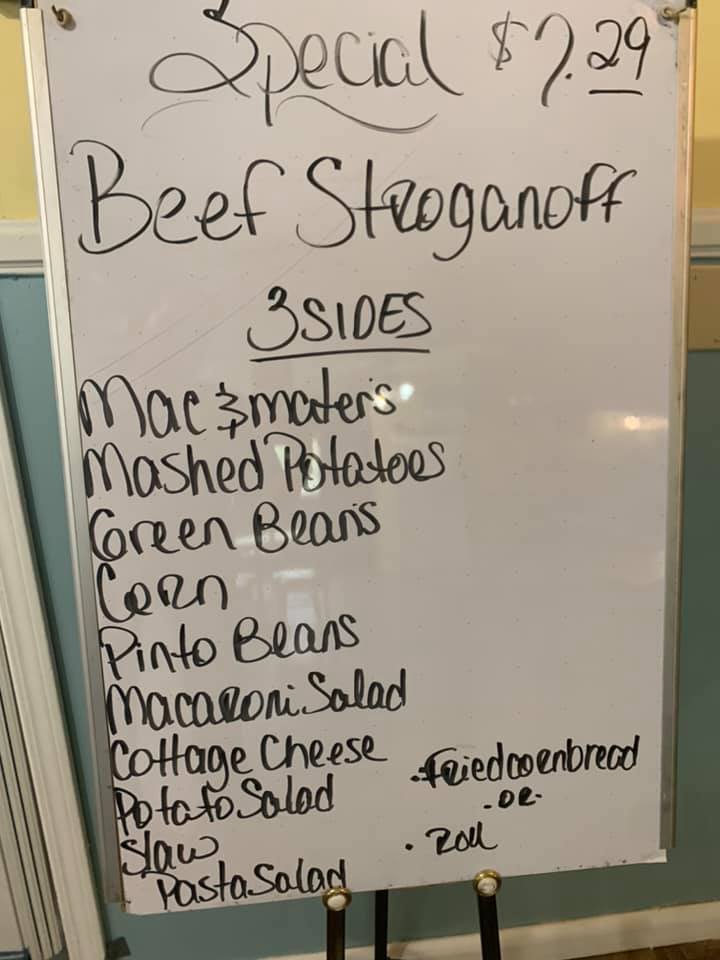 Special $7.29
Beef Stroganoff
3 SIDES
Mac & mater's
Mashed Potatoes
Green Beans
Corn
Pinto Beans
Macaroni Salad
Cottage Cheese
Potato Salad
Slaw
Pasta Salad
• fried cornbread
- OR -
• Roll